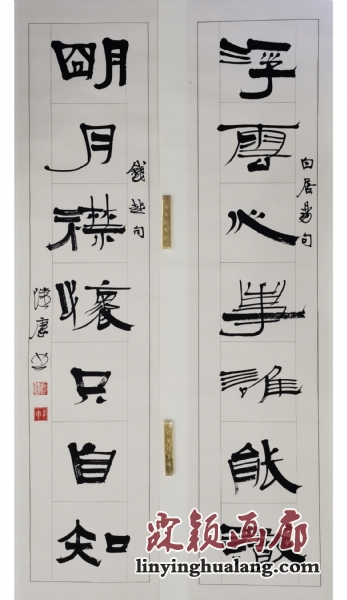 浮雲心事誰能識
白居易句
明月襟懷只自知
錢起句
霖颖画廊
linyinghualang.com